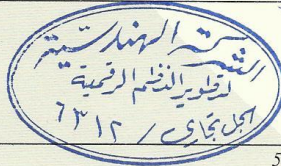 الشركة الهندسية
لتطوير النظم الرقمية
سجل تجاري / ٦٣١٢
5